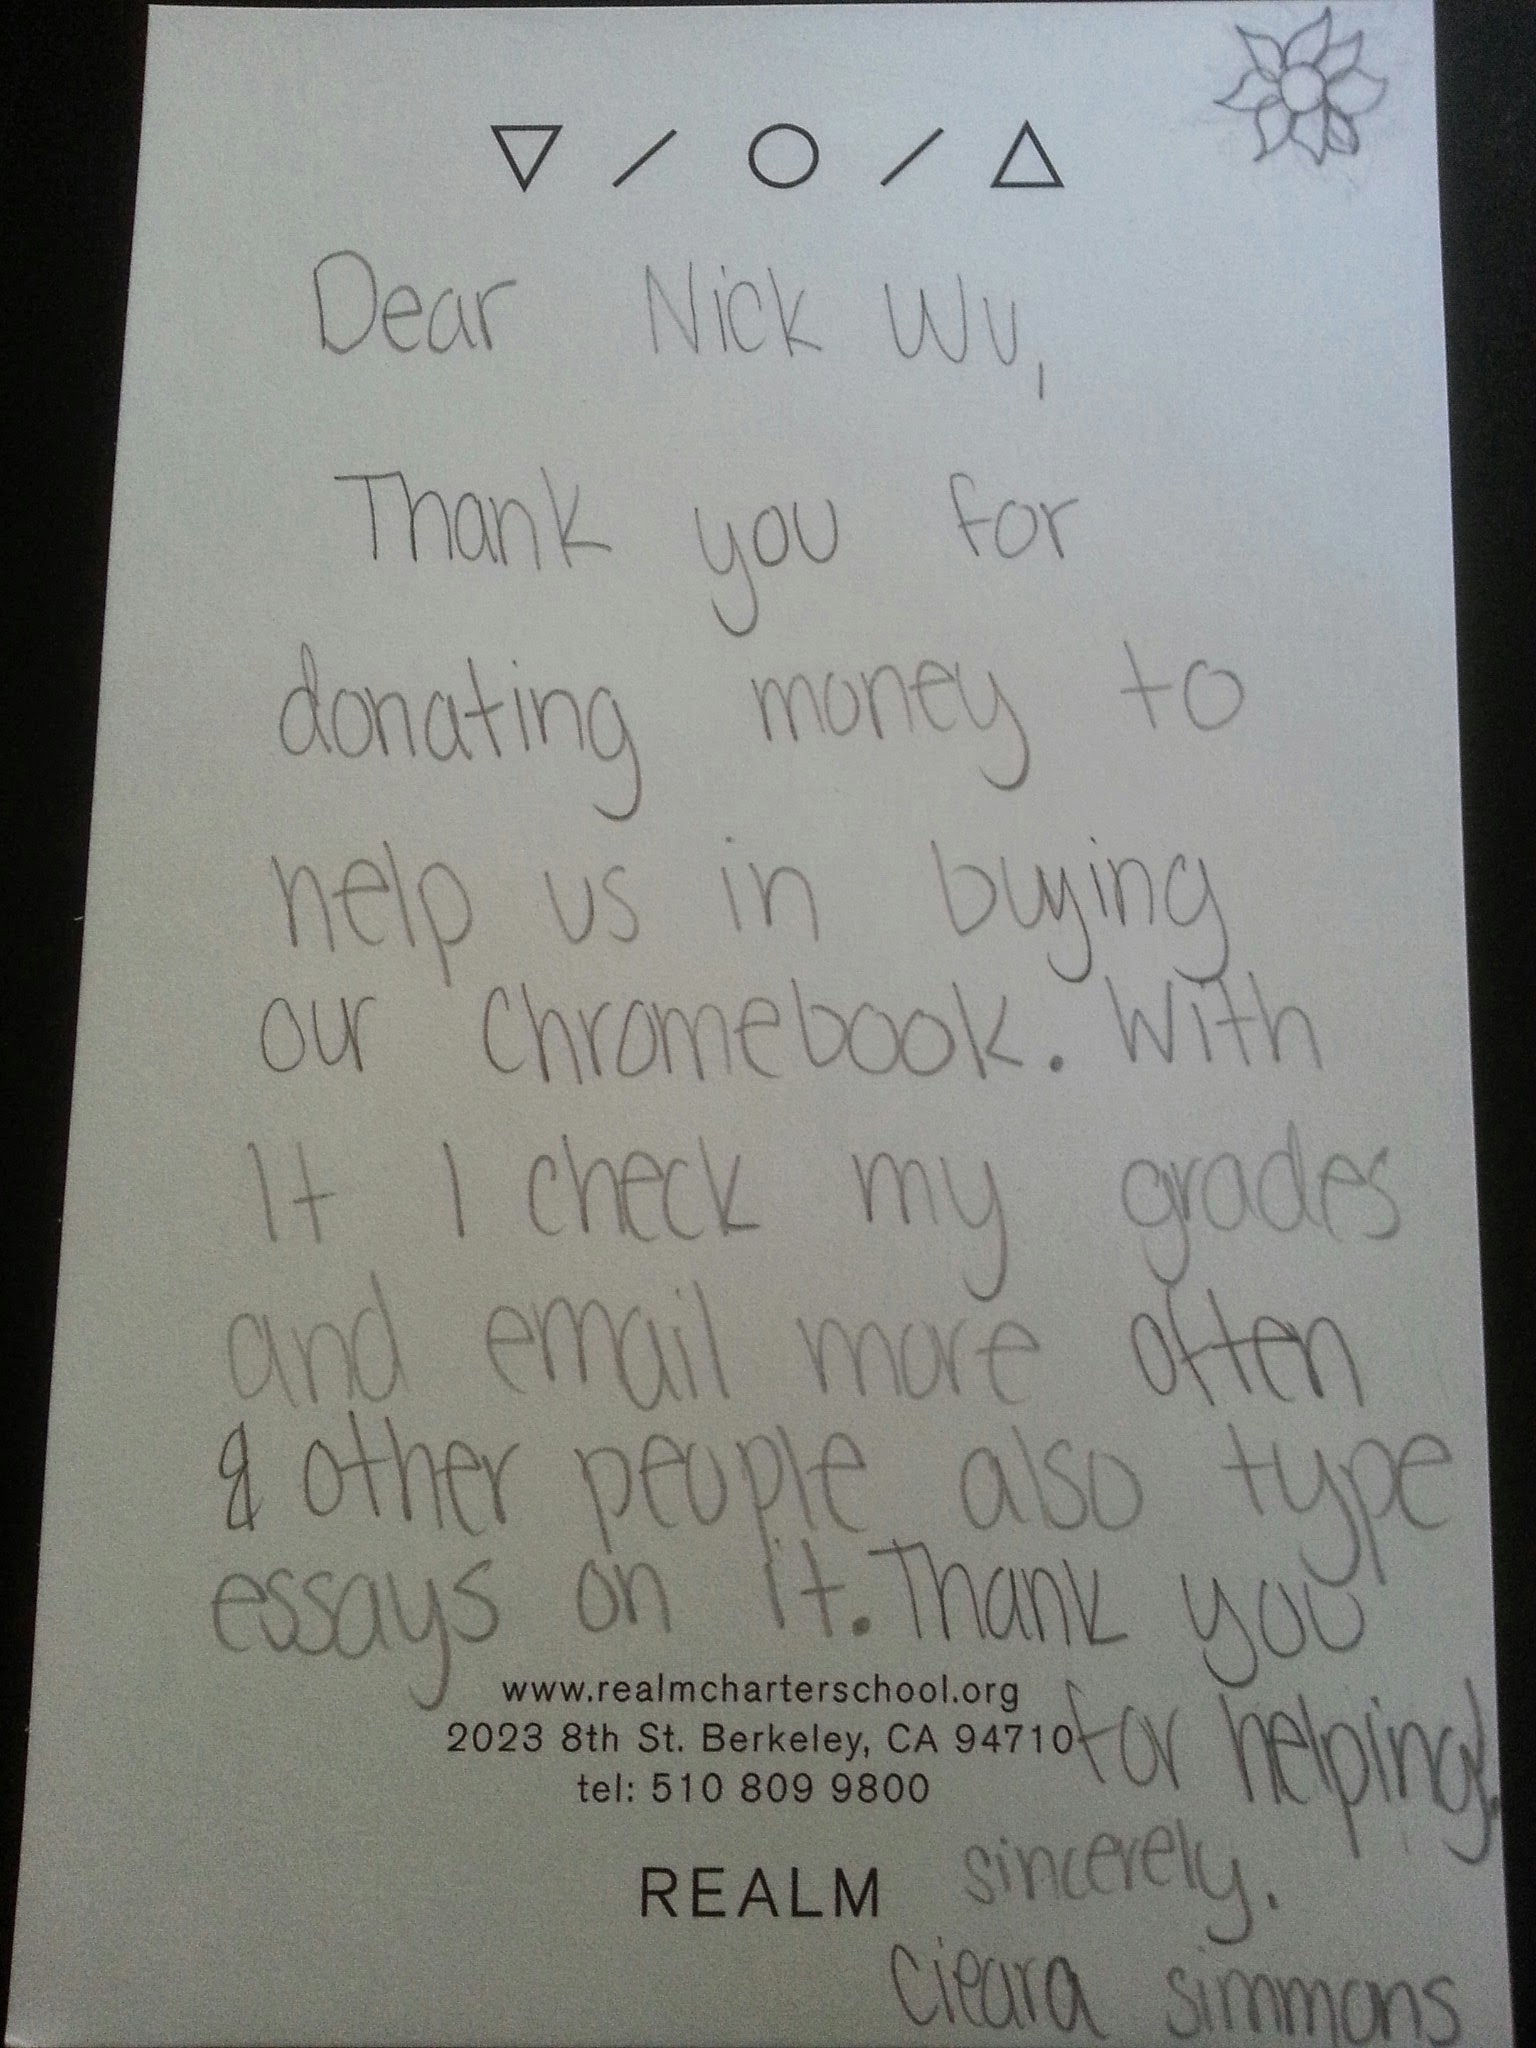 Dear Nick Wu,
Thank you for
donating money to
help us in buying
our Chromebook. With
It I check my grades
and email more often
& other people also type
essays on it. Thank you
for helping!
www.realmcharterschool.org
2023 8th St. Berkeley, CA 94710
tel: 510 809 9800
sincerely.
REALM
Cieara simmons